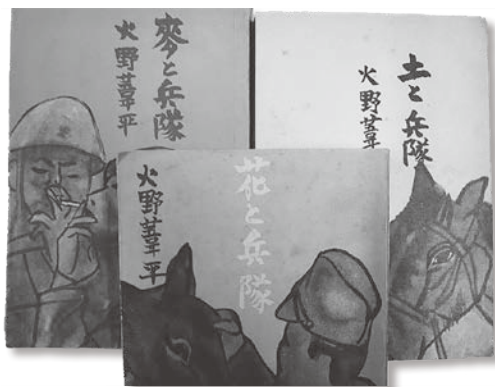 麥と兵隊
火野葦平
土と兵隊
火野葦
花と兵隊
火野葦平